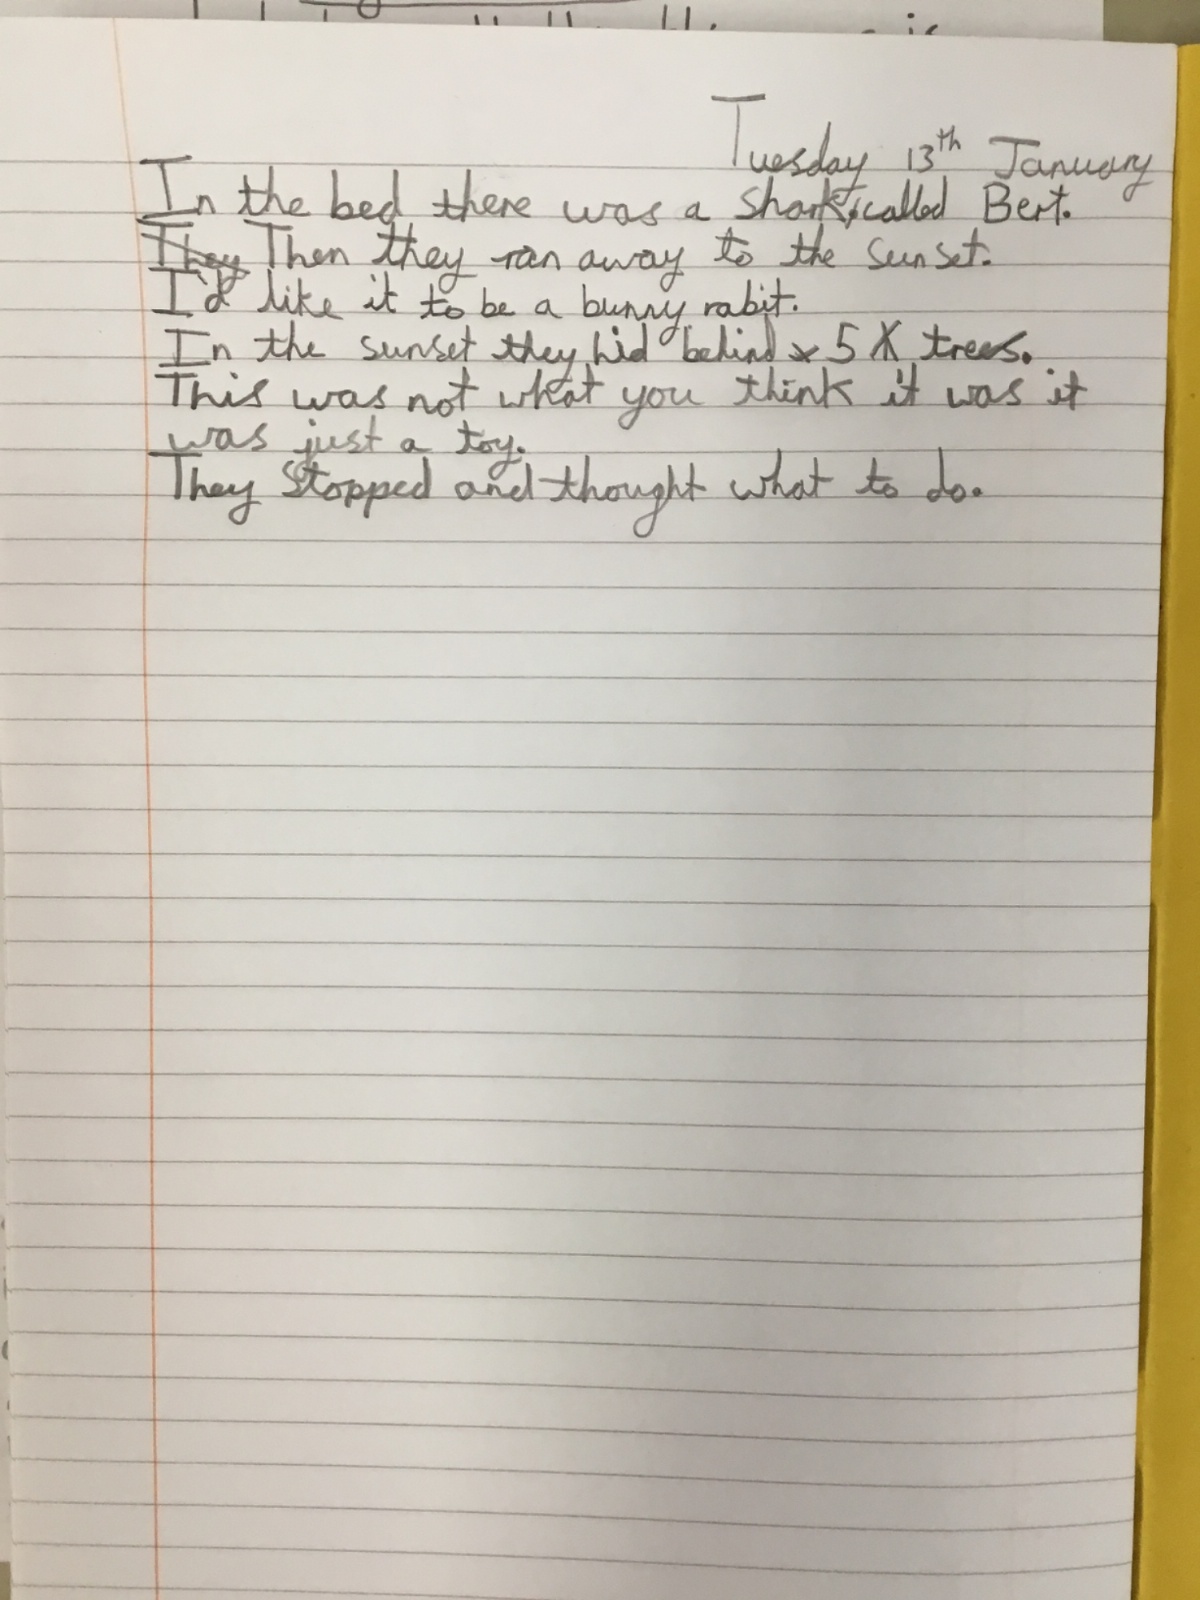 Tuesday 13th January
In the bed there was a shark, called Bert.
They Then they ran away to the sunset.
I'd like it to be a bunny rabit.
In the sunset they hid behind x 5 X trees.
This was not what you think it was it
was just a toy.
They stopped and thought what to do.